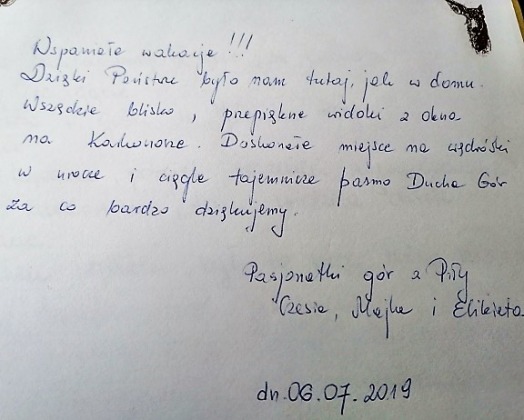 Wspaniałe wakacje !!!
Dzięki Państwu było nam tutaj, jak w domu.
Wszędzie blisko, przepiękne widoki z okna
na Karkonosze. Doskonałe miejsce na wędrówki
w urocze i ciągle tajemnicze pasmo Ducha Gór
za co bardzo dziękujemy.
Pasjonatki gór z Piły
Czesia, Majka i Elżbieta.
dn. 06.07.2019